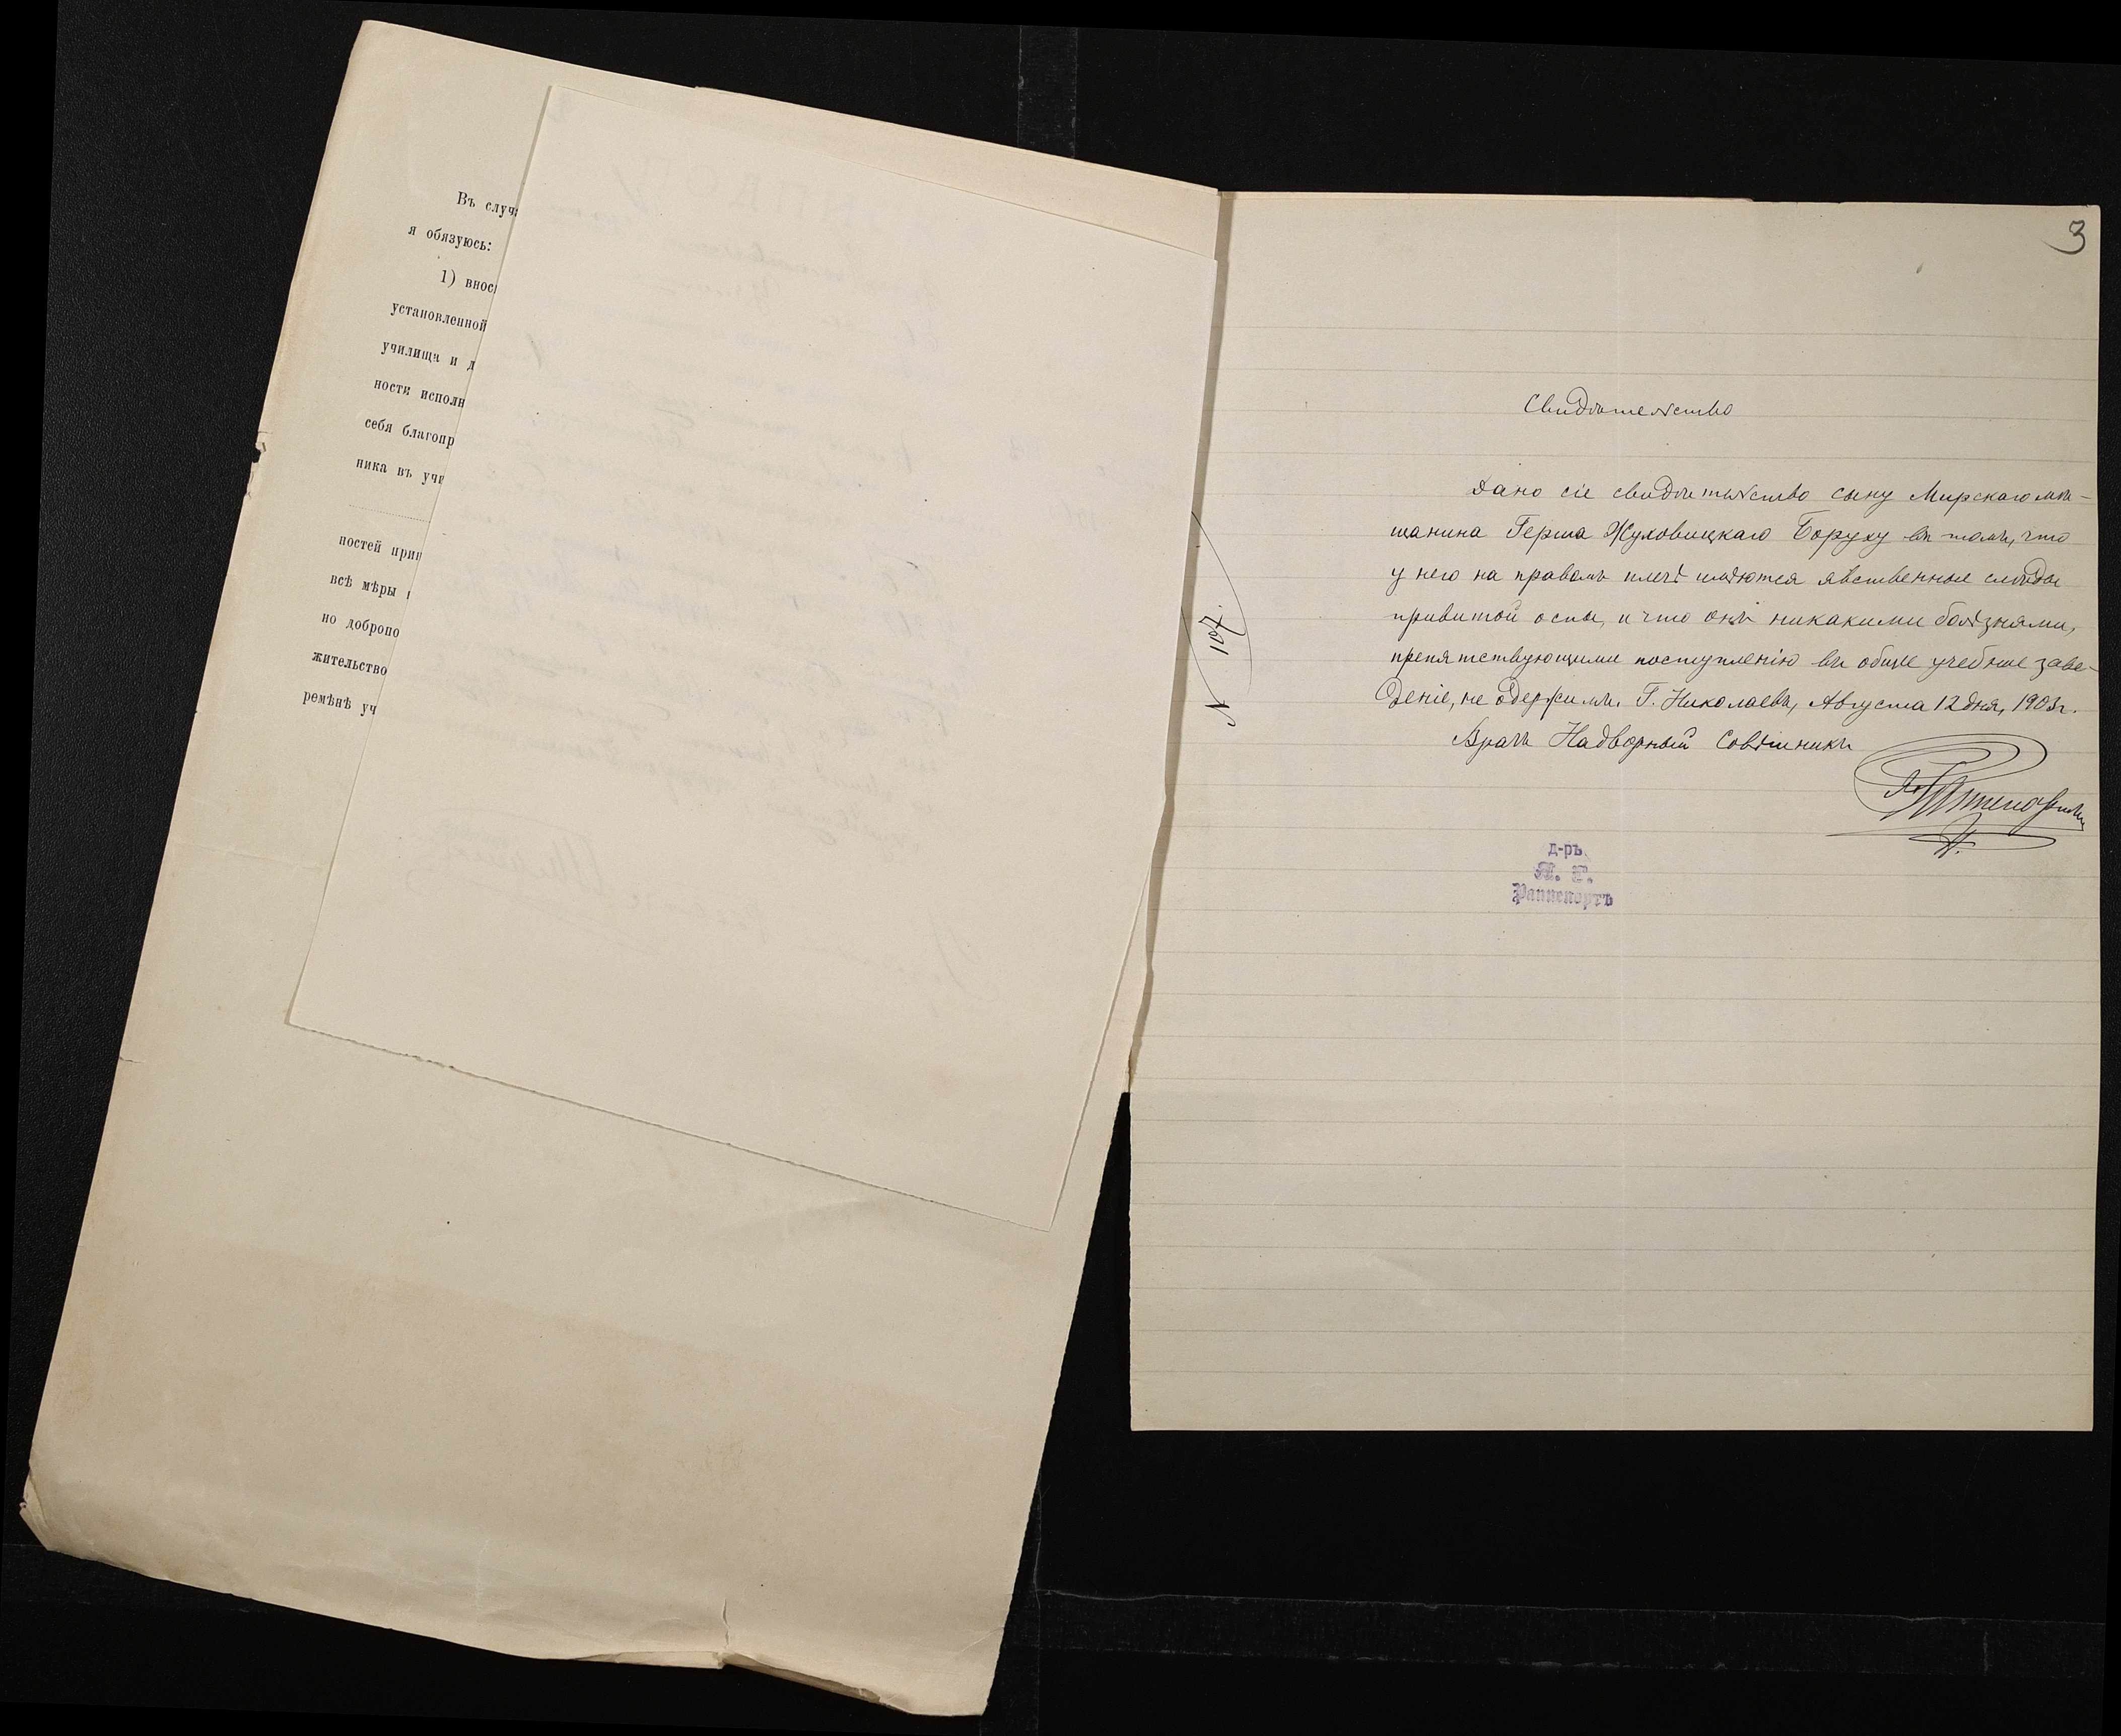 Въ случ
я обязуюсь:
1) внос
установленной
училища и д
ности исполн
себя благопр
ника въ учи
ностей прин
всѣ мѣры
но добропо
жительство
ремѣнѣ уч
3
Свидѣтельство
Дано сіе свидѣтельство сыну Мирскаго мѣ-
щанина Герша Жуховицкаго Боруху въ томъ, что
у него на правомъ плечѣ имѣются явственные слѣды
привитой оспы, и что онъ никакими болѣзнями,
препятствующими поступленію въ общее учебное заве-
деніе, не одержимъ. Г. Николаевъ, Августа 12 дня, 1903 г.
Врачъ Надворный Совѣтникъ
д-ръ
Раппепортъ
N 107.